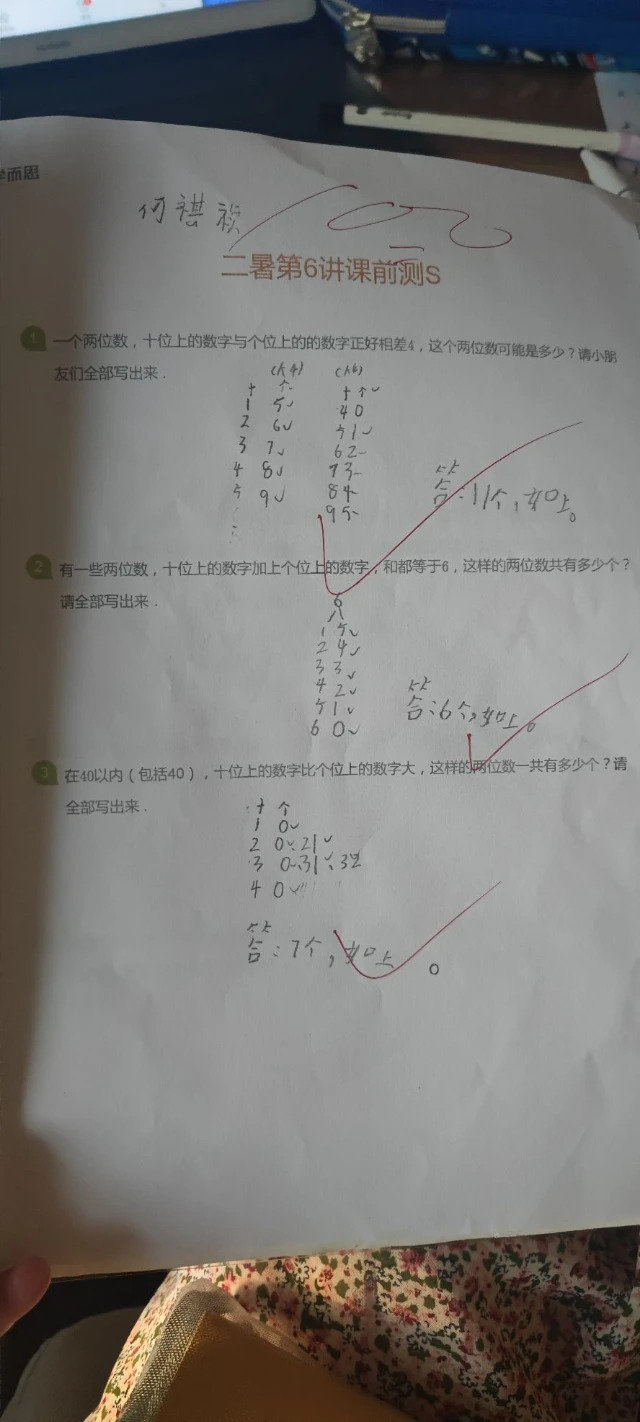 学而思
何禥
100
二暑第6讲课前测S
1 一个两位数，十位上的数字与个位上的的数字正好相差4，这个两位数可能是多少？请小朋
友们全部写出来．
十 个 十 个
1 5 4 0
2 6 5 1
3 7 6 2
4 8 7 3
5 9 8 4
9 5
答：11个，如上。
2 有一些两位数，十位上的数字加上个位上的数字，和都等于6，这样的两位数共有多少个？
请全部写出来．
6
1 5
2 4
3 3
4 2
5 1
6 0
答：6个，如上。
3 在40以内（包括40），十位上的数字比个位上的数字大，这样的两位数一共有多少个？请
全部写出来．
十 个
1 0
2 0、21
3 0、31、32
4 0
答：7个，如上。